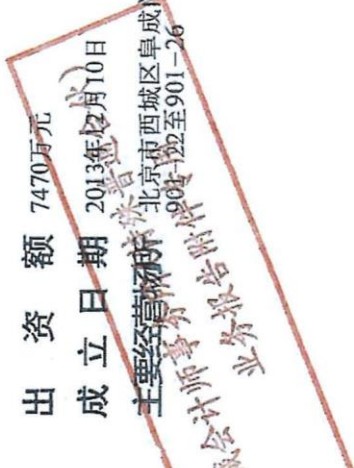 出资额 7470万元
成立日期 2013年12月10日
主要经营场所 北京市西城区阜成
901-22至901-26
会计师事务所
业务报告附件